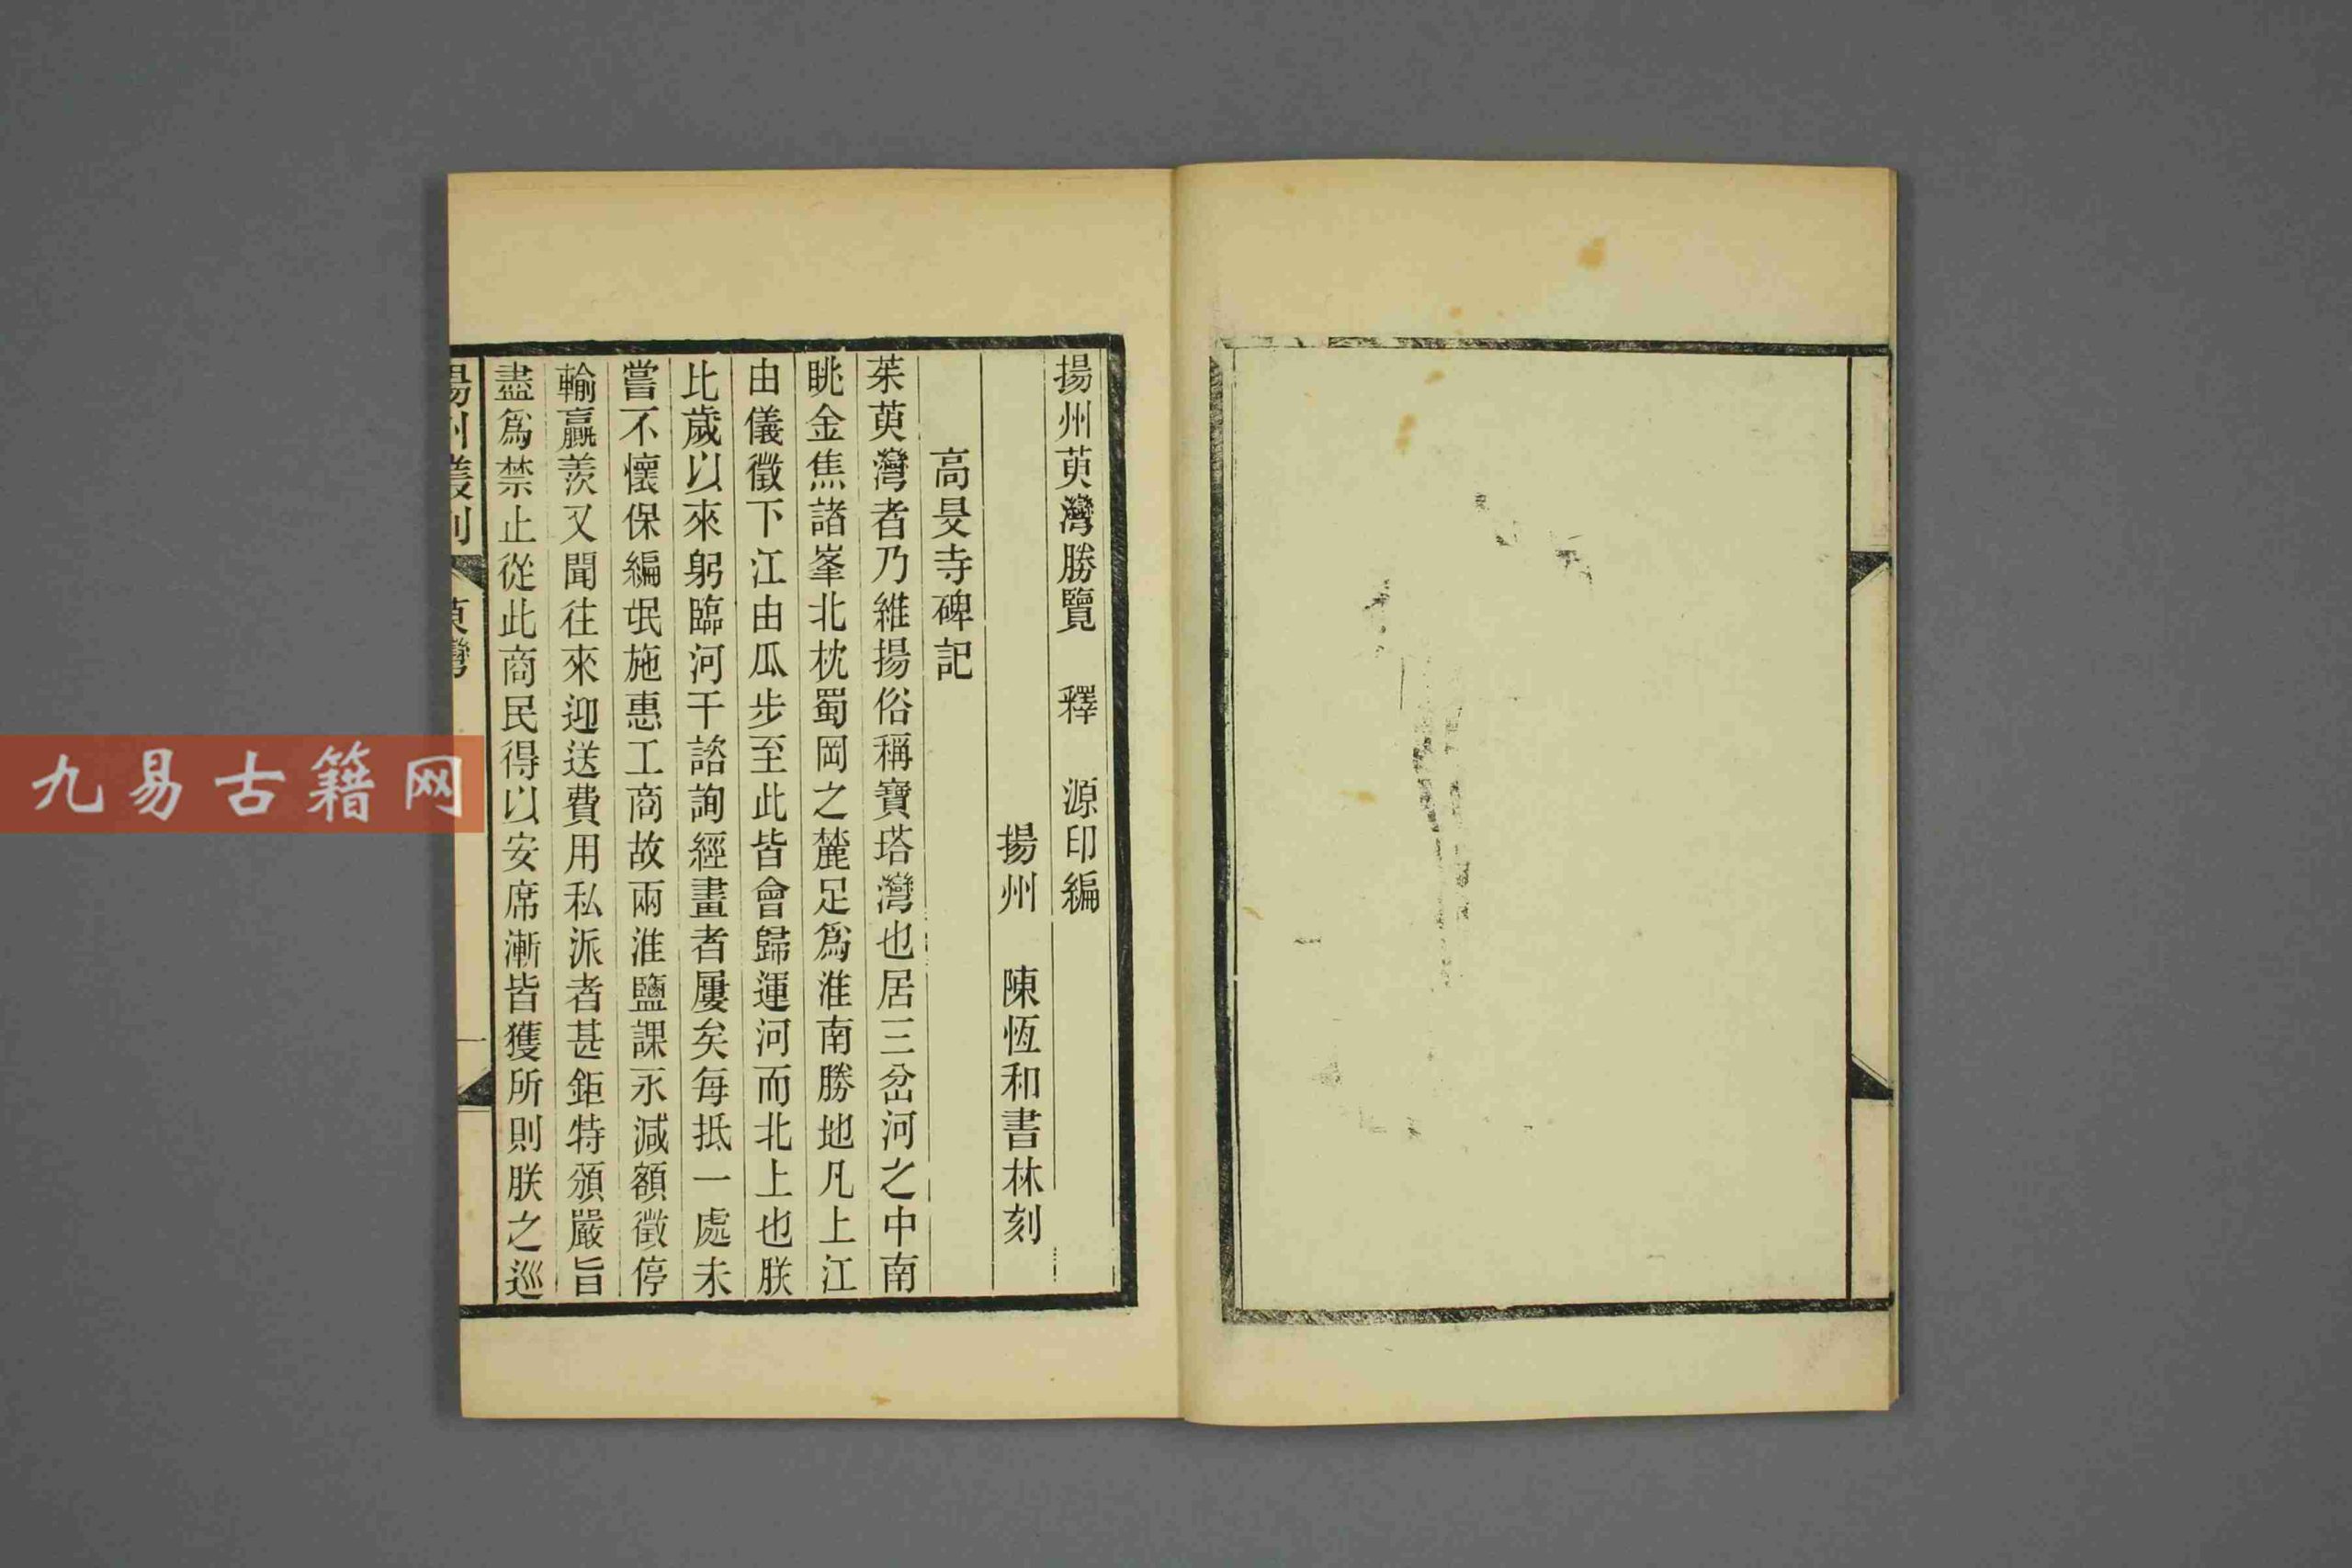 揚州萸灣勝覽　釋　源印編
揚州　陳恆和書林刻
高旻寺碑記
茱萸灣者乃維揚俗稱寶塔灣也居三岔河之中南
眺金焦諸峯北枕蜀岡之麓足爲淮南勝地凡上江
由儀徵下江由瓜步至此皆會歸運河而北上也朕
比歲以來躬臨河干諮詢經畫者屢矣每抵一處未
嘗不懷保編氓施惠工商故兩淮鹽課永減額徵停
輸羸羨又聞往來迎送費用私派者甚鉅特頒嚴旨
盡爲禁止從此商民得以安席漸皆獲所則朕之巡
揚州叢刊　萸灣　一
九易古籍网